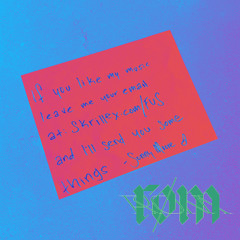 if you like my music
leave me your email
at skrillex.com/FUS
and I'll send you some
things - Sonny